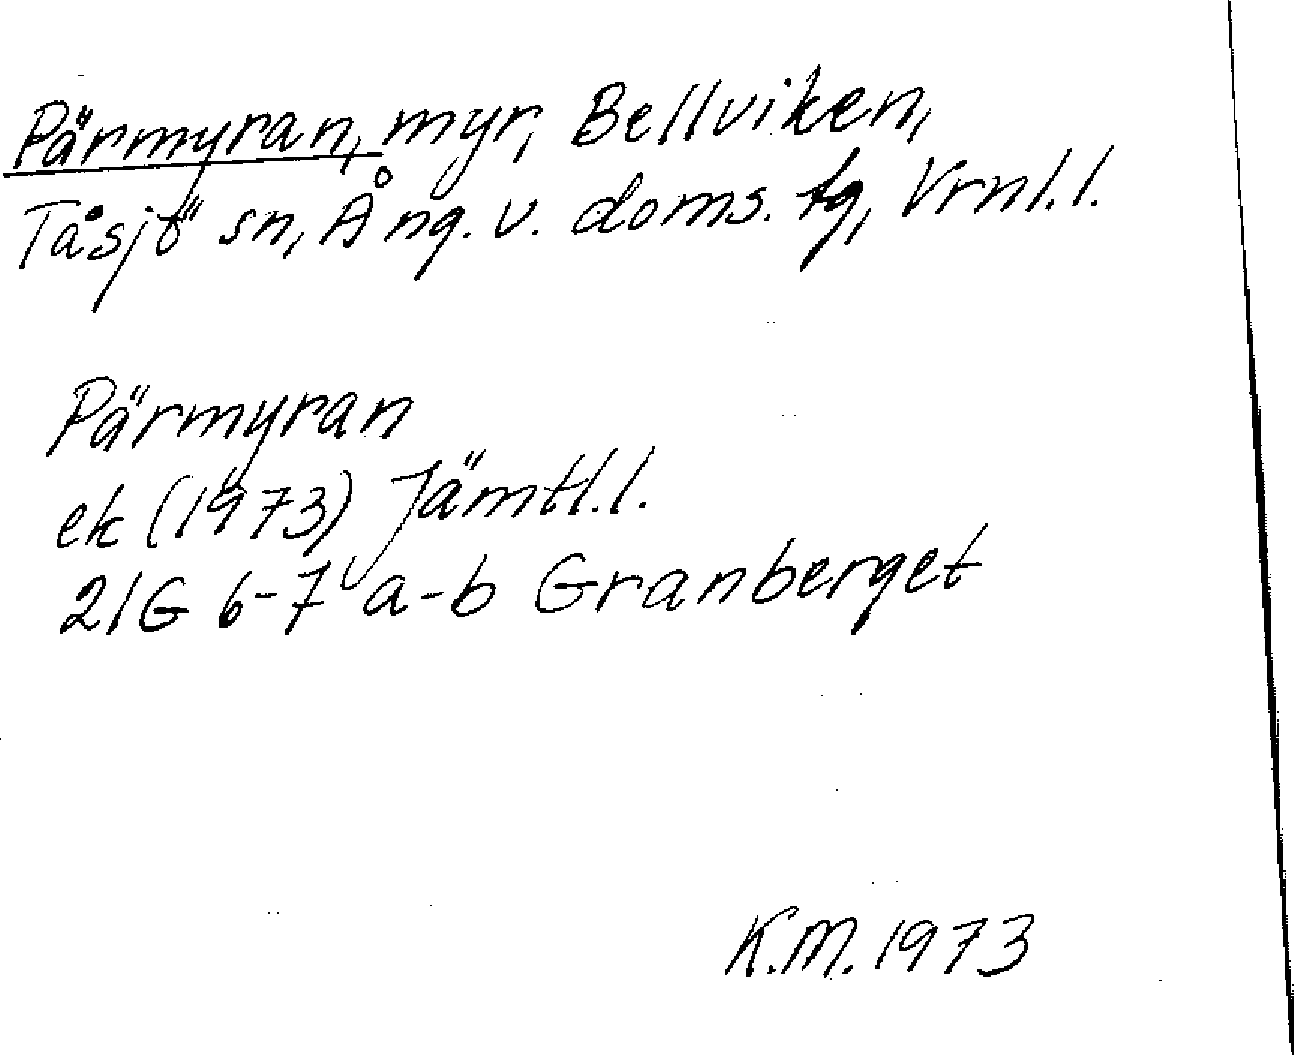 Pärmyran, myr, Bellviken,
Tåsjö sn, Ång. v. doms. tg, Vrnl.l.
Pärmyran
ek (1973) Jämtl.l.
21G 6-7 a-b Granberget
K.M. 1973